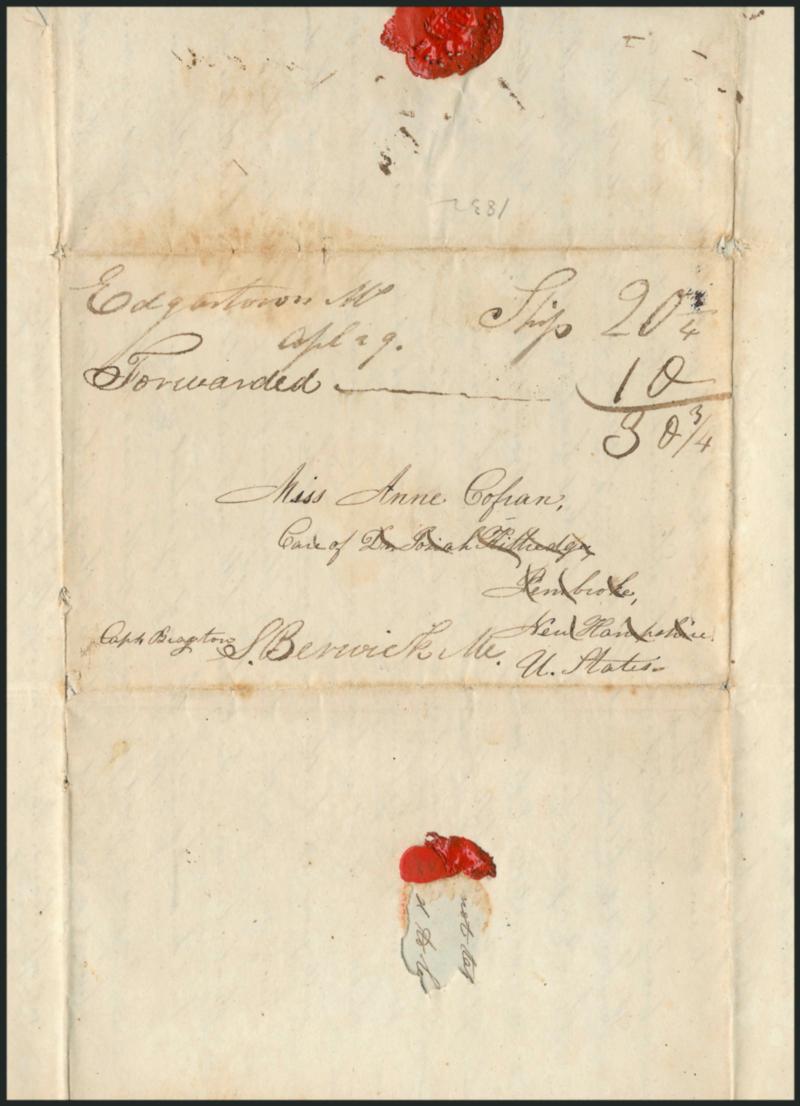 1832
Edgartown Ms
Apl 29.
Ship 20 3/4
Forwarded 10
30 3/4
Miss Anne Cofran,
Care of Dr. Josiah Kittredge,
Pembroke,
New Hampshire.
Capt Bragton
S. Berwick Me.
U. States
not